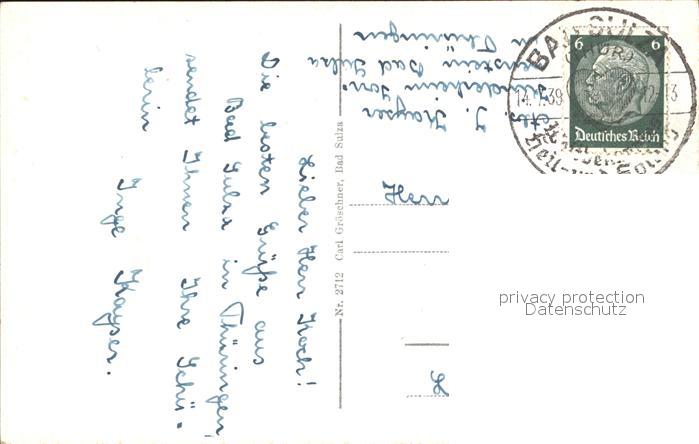 Lieber Herr Koch!
Die besten Grüße aus
Bad Sulza in Thüringen
sendet Ihnen Ihre Schü-
lerin
Inge Kayser.
Nr. 2712 Carl Gröschner, Bad Sulza
Abs.
J. Kayser
Kinderheim
Bad Sulza
in Thüringen
Herr
L
BAD SULZA
(THÜR)
14.7.39
6 6
Deutsches Reich
privacy protection
Datenschutz